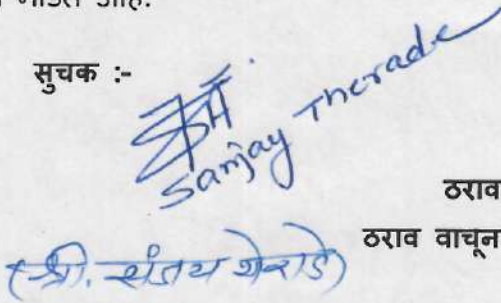 मांडत आहे.
सुचक :-
Sanjay Therade
ठराव
ठराव वाचून
(श्री. संजय थेराडे)